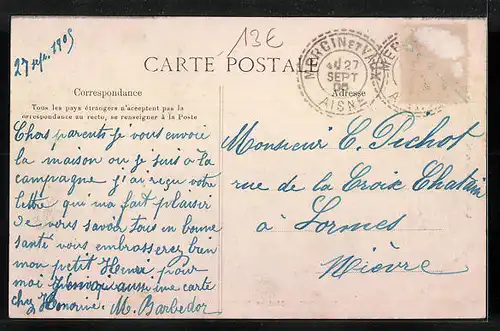 27 sept. 1905
13€
CARTE POSTALE
MERCIN ET VAUX
27
SEPT
05
AISNE
Correspondance
Tous les pays étrangers n'acceptent pas la
correspondance au recto, se renseigner à la Poste
Adresse
Chers parents je vous envoie
la maison ou je suis à la
campagne j'ai reçu votre
lettre qui ma fait plaisir
de vous savoir tous en bonne
santé vous embrasserez bien
mon petit Henri pour
moi aussi une carte
chez Honorine. M. Barbedor
Monsieur C. Pichot
rue de la Croix Chatain
à Lormes
Nièvre